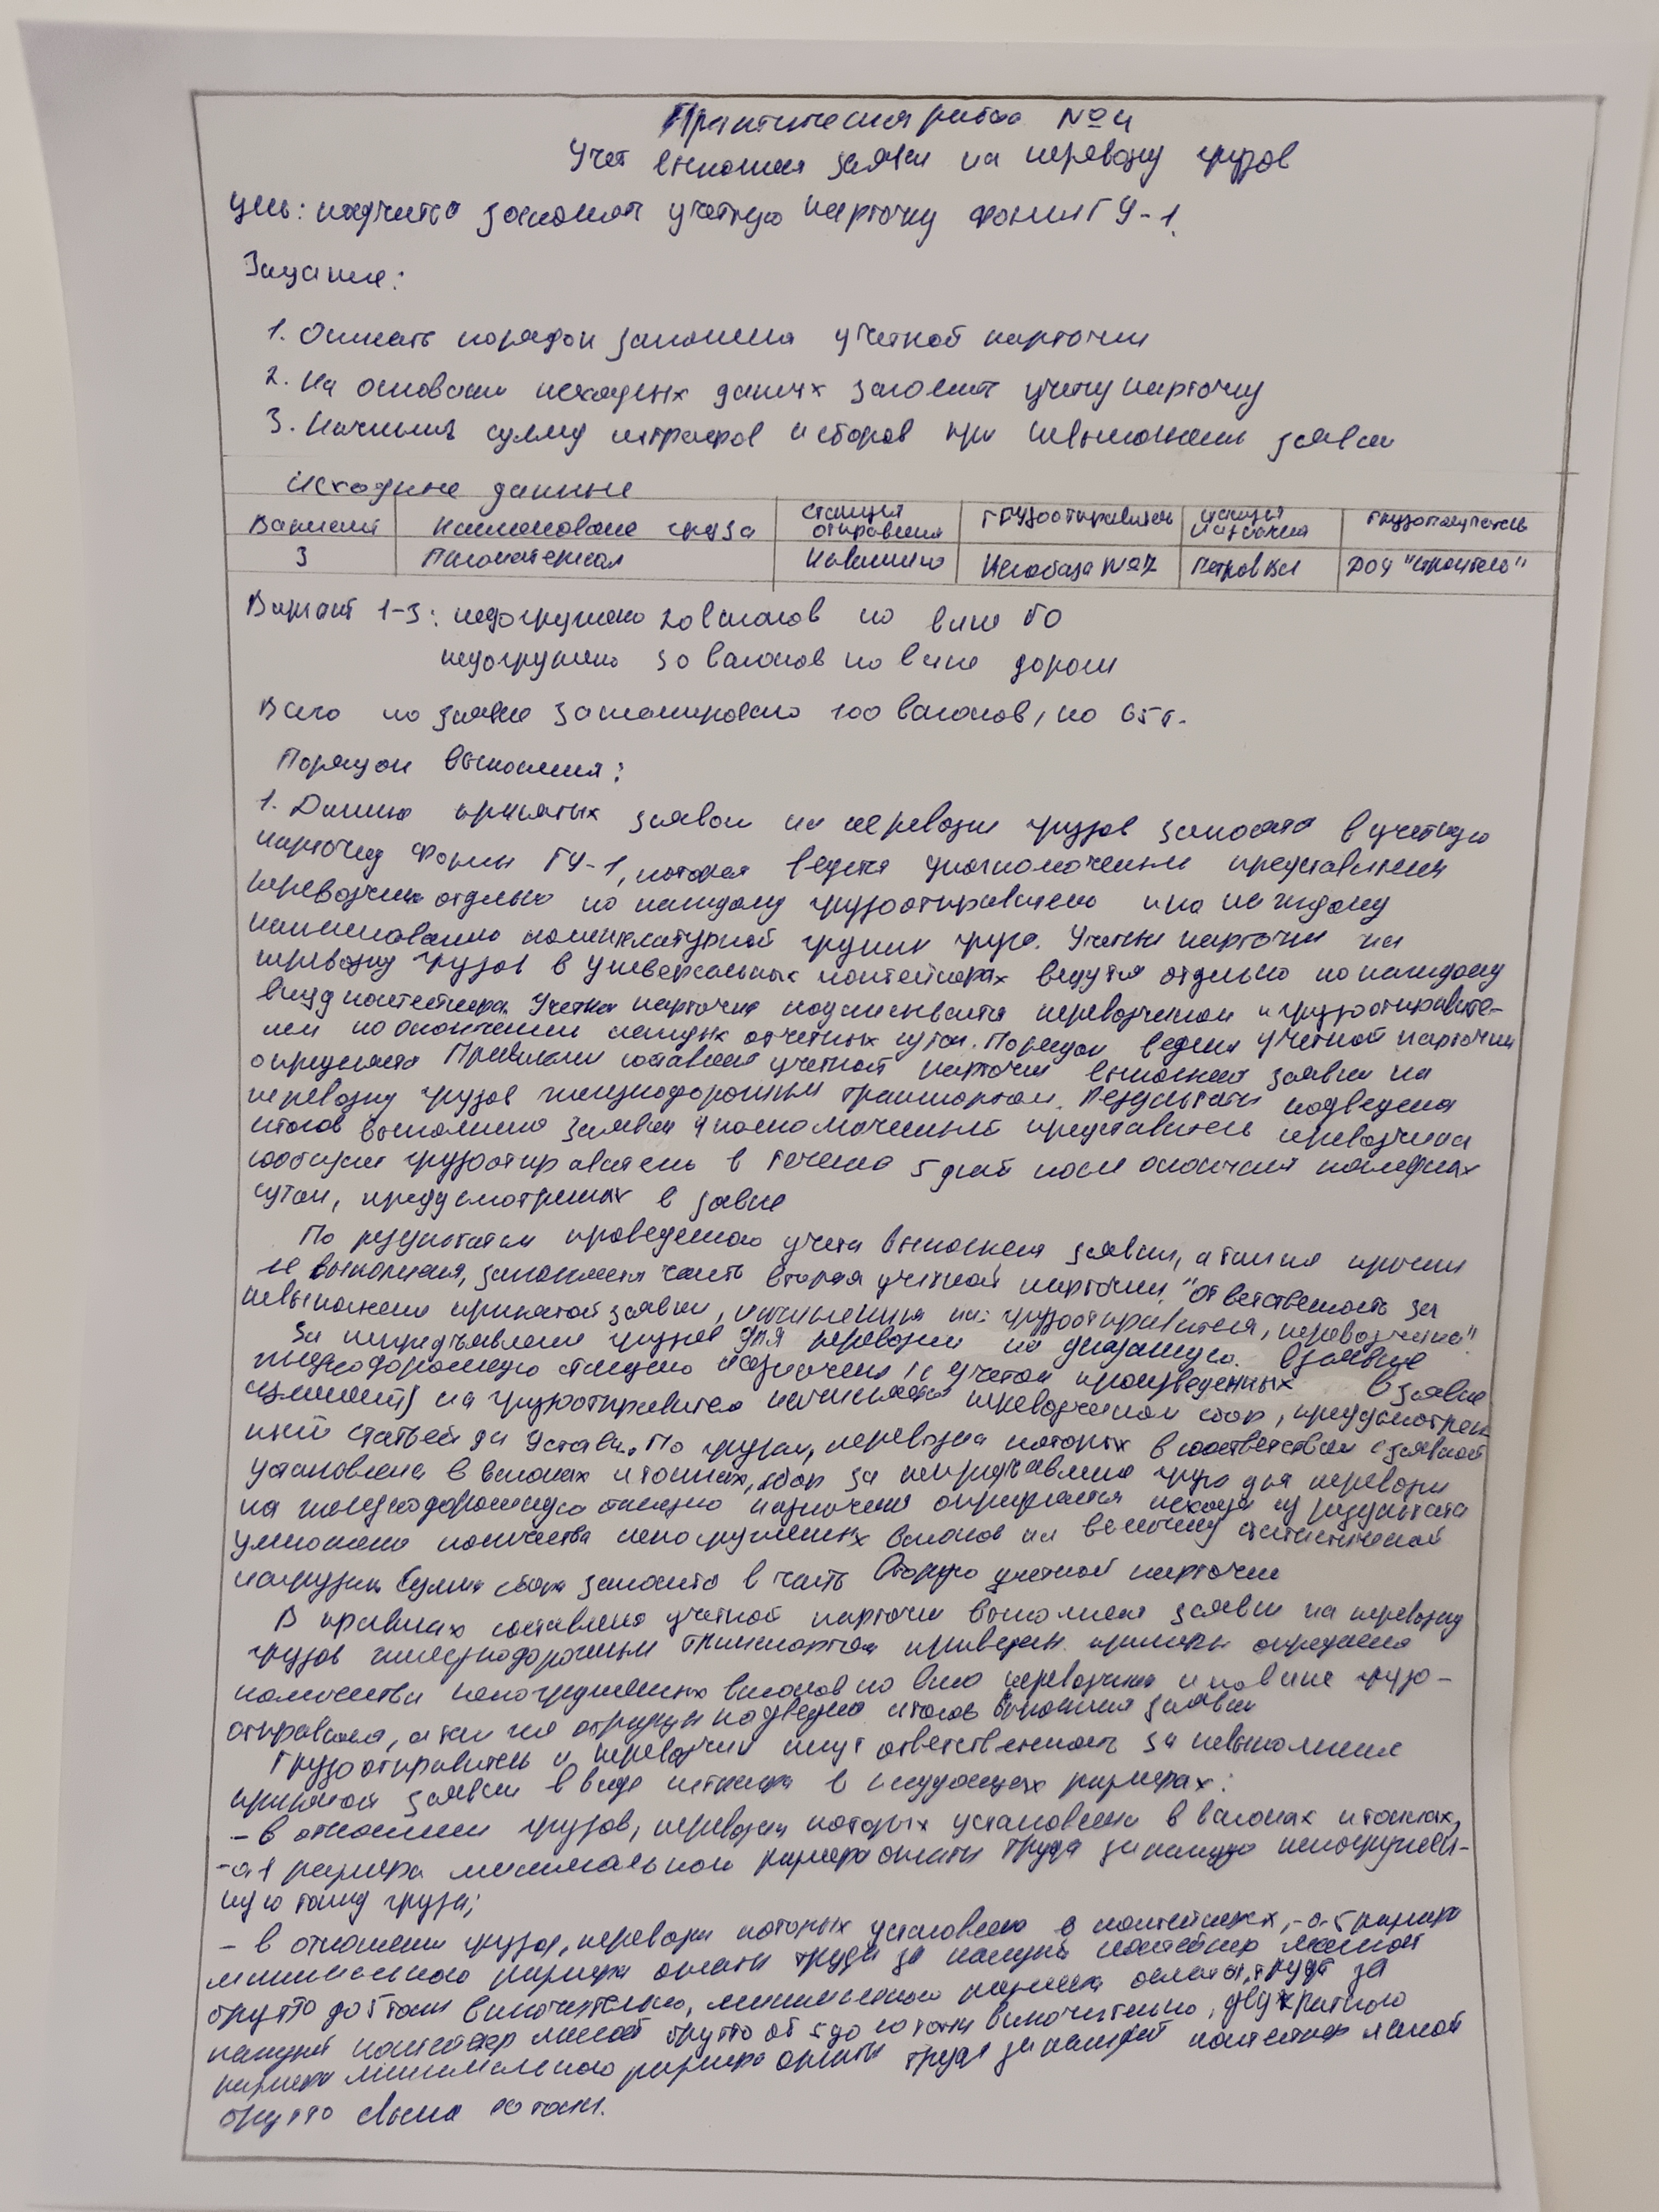 Практическая работа №4
Учет выполнения заявки на перевозку грузов
Цель: научится заполнять учетную карточку формы ГУ-1.
Задание:
1. Описать порядок заполнения учетной карточки
2. На основании исходных данных заполнить учетну карточку
3. Начислить сумму штрафов и сборов при невыполнении заявки
Исходные данные
Вариант Наименование груза станция отправления Грузоотправитель станция назначения Грузополучатель
3 Пиломатериал Навашино Нефтебаза №7 Петров Вал ДОЗ "Строитель"
Вариант 1-3: недогружено 20 вагонов по вине ГО
недогружено 30 вагонов по вине дороги
Всего по заявке запланировано 100 вагонов, по 65т.
Порядок выполнения:
1. Данные принятых заявок на перевозки грузов заносятся в учетную
карточку формы ГУ-1, которая ведется уполномоченным представителем
перевозчика отдельно по каждому грузоотправителю и по каждому
наименованию номенклатурной группы груза. Учетные карточки на
перевозку грузов в универсальных контейнерах ведутся отдельно по каждому
виду контейнера. Учетная карточка подписывается перевозчиком и грузоотправите-
лем по окончании каждых отчетных суток. Порядок ведения учетной карточки
определяется Правилами составления учетной карточки выполнения заявки на
перевозку грузов железнодорожным транспортом. Результаты подведения
итогов выполнения заявки уполномоченный представитель перевозчика
сообщает грузоотправитель в течение 5 дней после окончания последних
суток, предусмотренных в заявке
По результатам проведенного учета выполнения заявки, а также причин
не выполнения, заполняется часть вторая учетной карточки "Ответственность за
невыполнение принятой заявки, начисленная на: грузоотправителя, перевозчика".
За непредъявление грузов для перевозки на указанную в заявке
железнодорожную станцию назначения (с учетом произведенных в заявке
изменений) на грузоотправителя начисляется перевозчиком сбор, предусмотрен
ный статьей да Устава. По грузам, перевозка которых в соответствии с заявкой
установлена в вагонах и тоннах, сбор за непредъявление груза для перевозки
на железнодорожную станцию назначения определяется исходя из результата
умножения количества непогруженных вагонов на величину статистической
нагрузки. Сумма сбора заносится в часть Вторую учетной карточки
В правилах составления учетной карточки выполнения заявки на перевозку
грузов железнодорожным транспортом приведены примеры определения
количества непогруженных вагонов по вине перевозчика и по вине грузо-
отправителя, а так же порядок подведения итогов выполнения заявки
Грузоотправитель и перевозчик несут ответственность за невыполнение
принятой заявки в виде штрафа в следующих размерах:
- в отношении грузов, перевозки которых установлены в вагонах и тоннах,
-0,1 размера минимального размера оплаты труда за каждую непогружен-
ную тонну груза;
- в отношении грузов, перевозки которых установлено в контейнерах, - 0.5 размера
минимального размера оплаты труда за каждый контейнер массой
брутто до 5 тонн включительно, минимального размера оплаты труда за
каждый контейнер массой брутто от 5 до 10 тонн включительно, двукратного
размера минимального размера оплаты труда за каждый контейнер массой
брутто свыше 10 тонн.